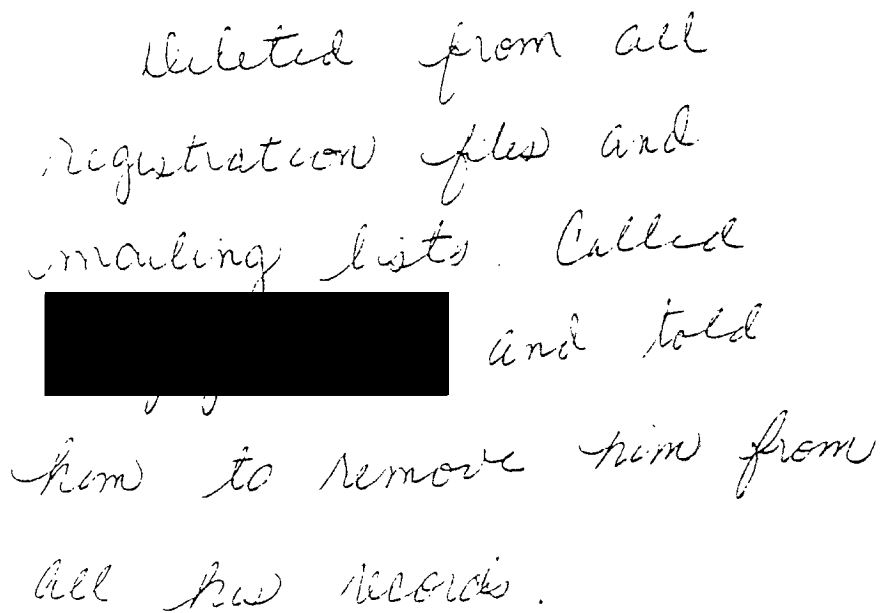 Deleted from all
registration files and
mailing lists. Called
and told
him to remove him from
all his records.